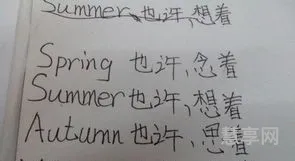 Summer 也许、想着
Spring 也许、念着
Summer 也许、想着
Autumn 也许、思着
慧享网